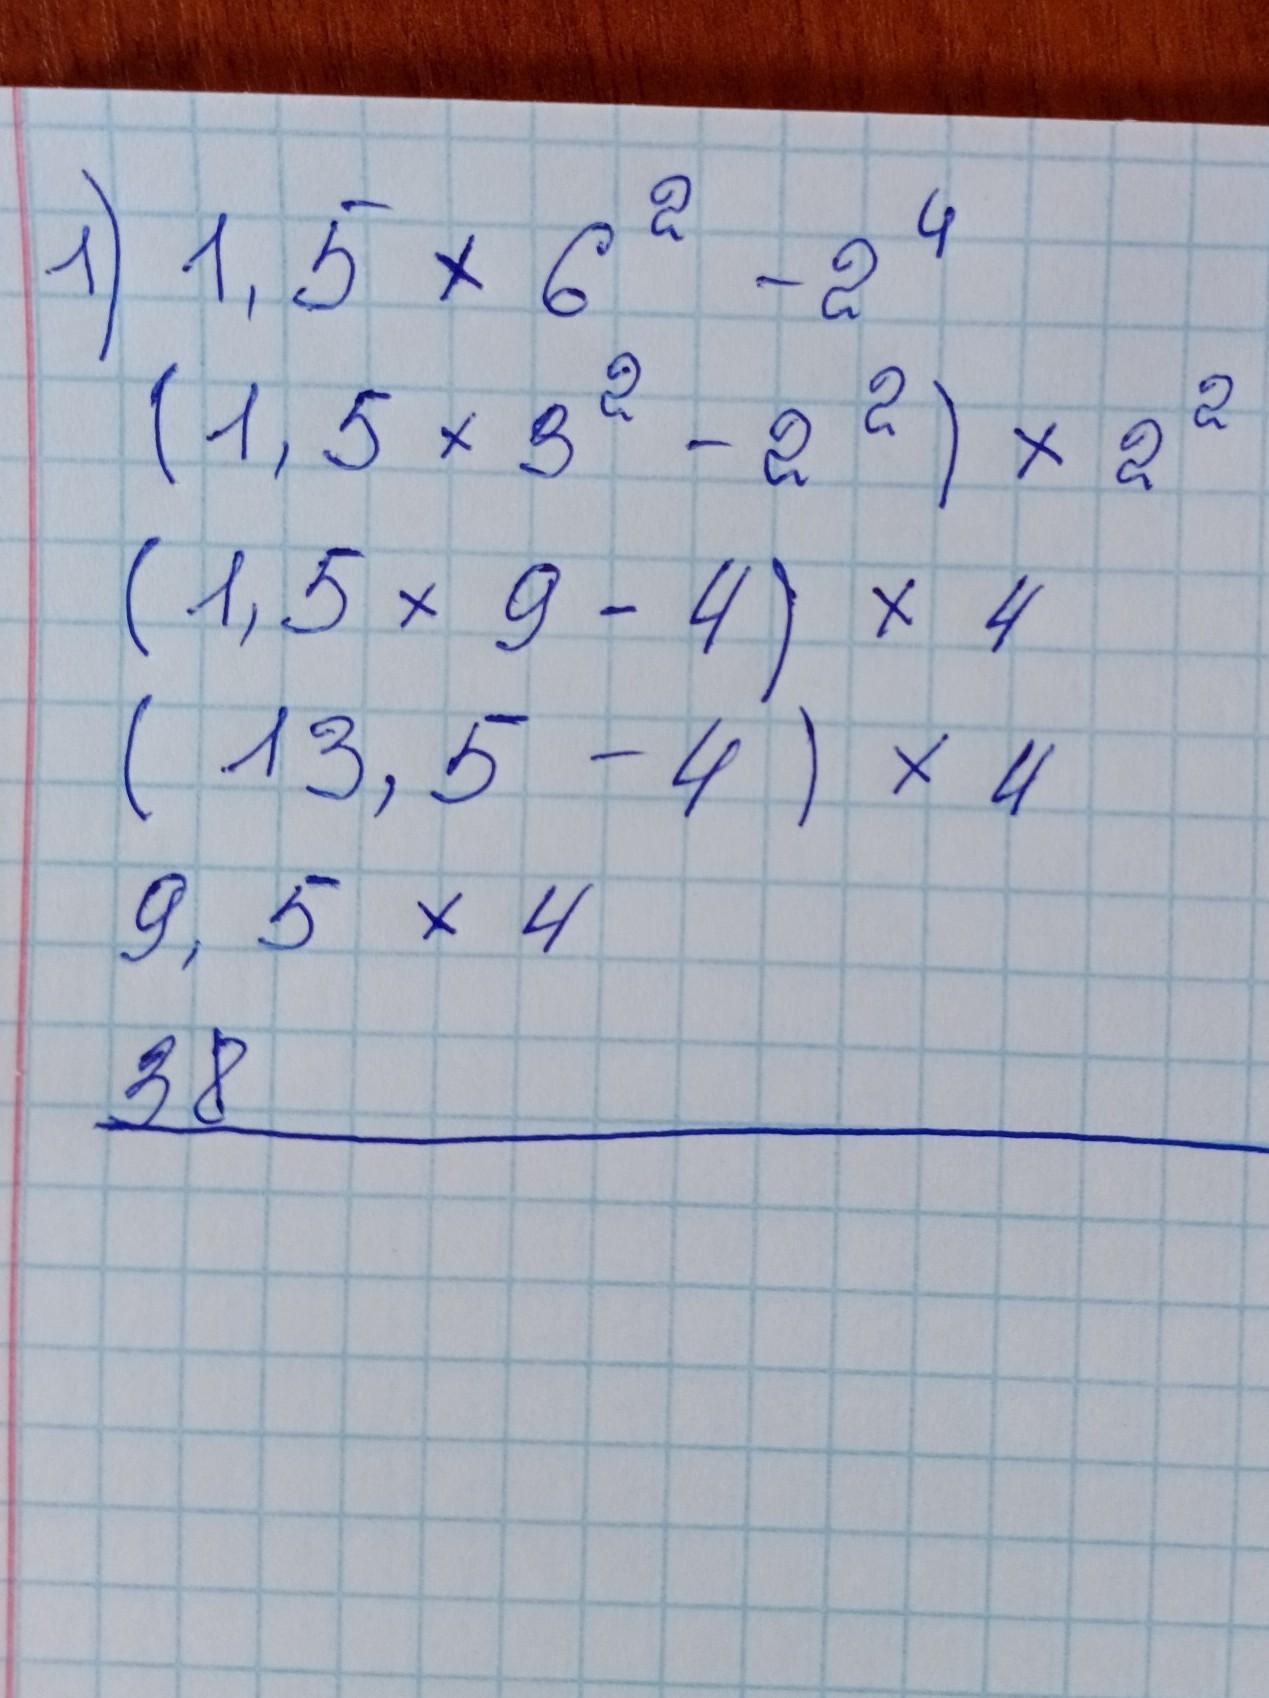 1) 1,5 × 6² - 2⁴
(1,5 × 3² - 2²) × 2²
(1,5 × 9 - 4) × 4
(13,5 - 4) × 4
9,5 × 4
38